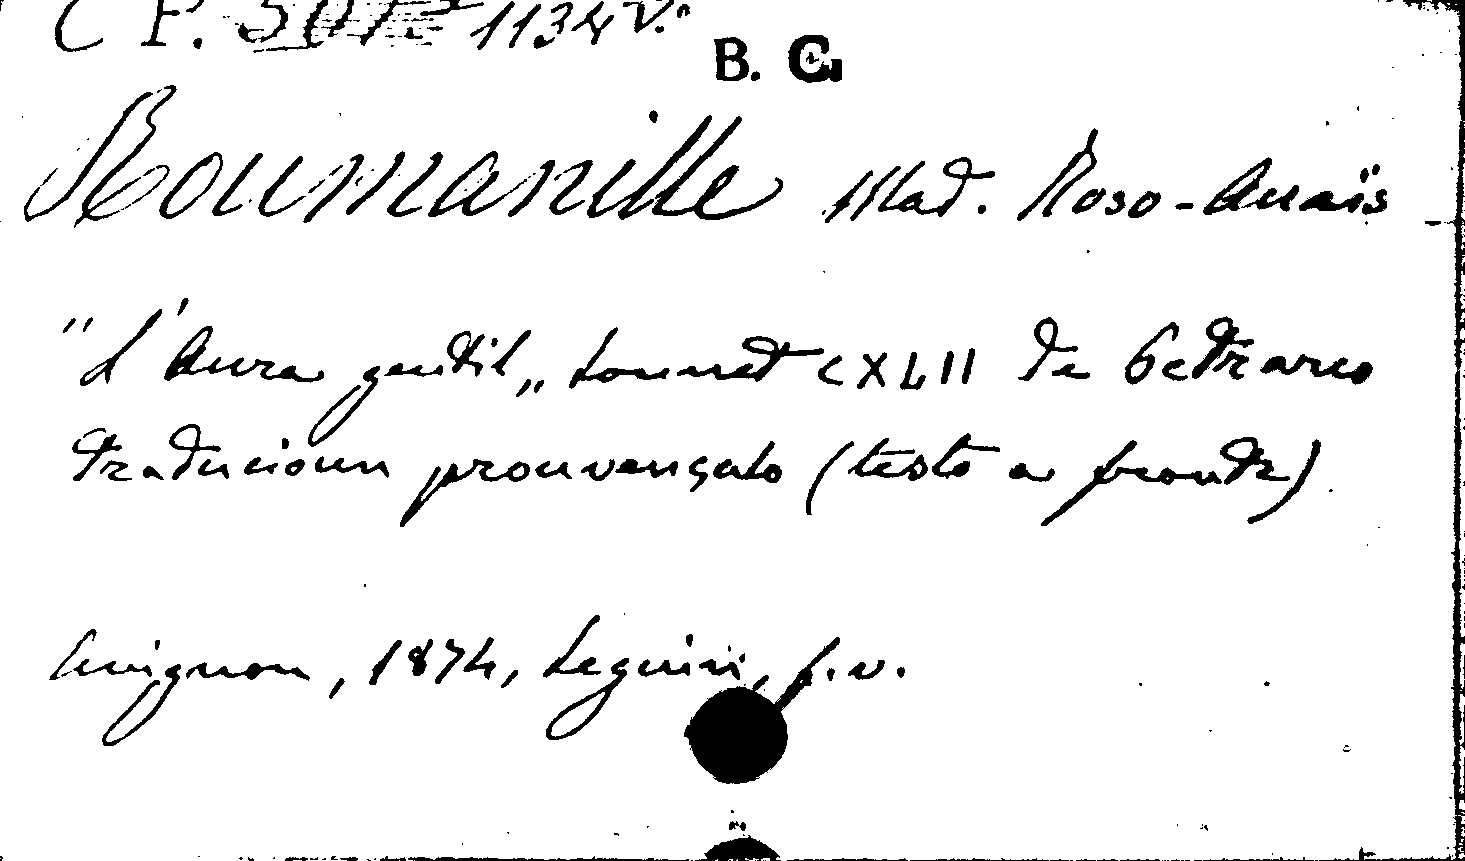 C P. 301. 1134 v.°
B. C.
Roumanille Mad. Roso-Anaïs
"L'Aura gentil„ sonnet CXLII de Petrarco
traducioun prouvençalo (testo a fronte)
Avignon, 1874, Seguin, f.v.